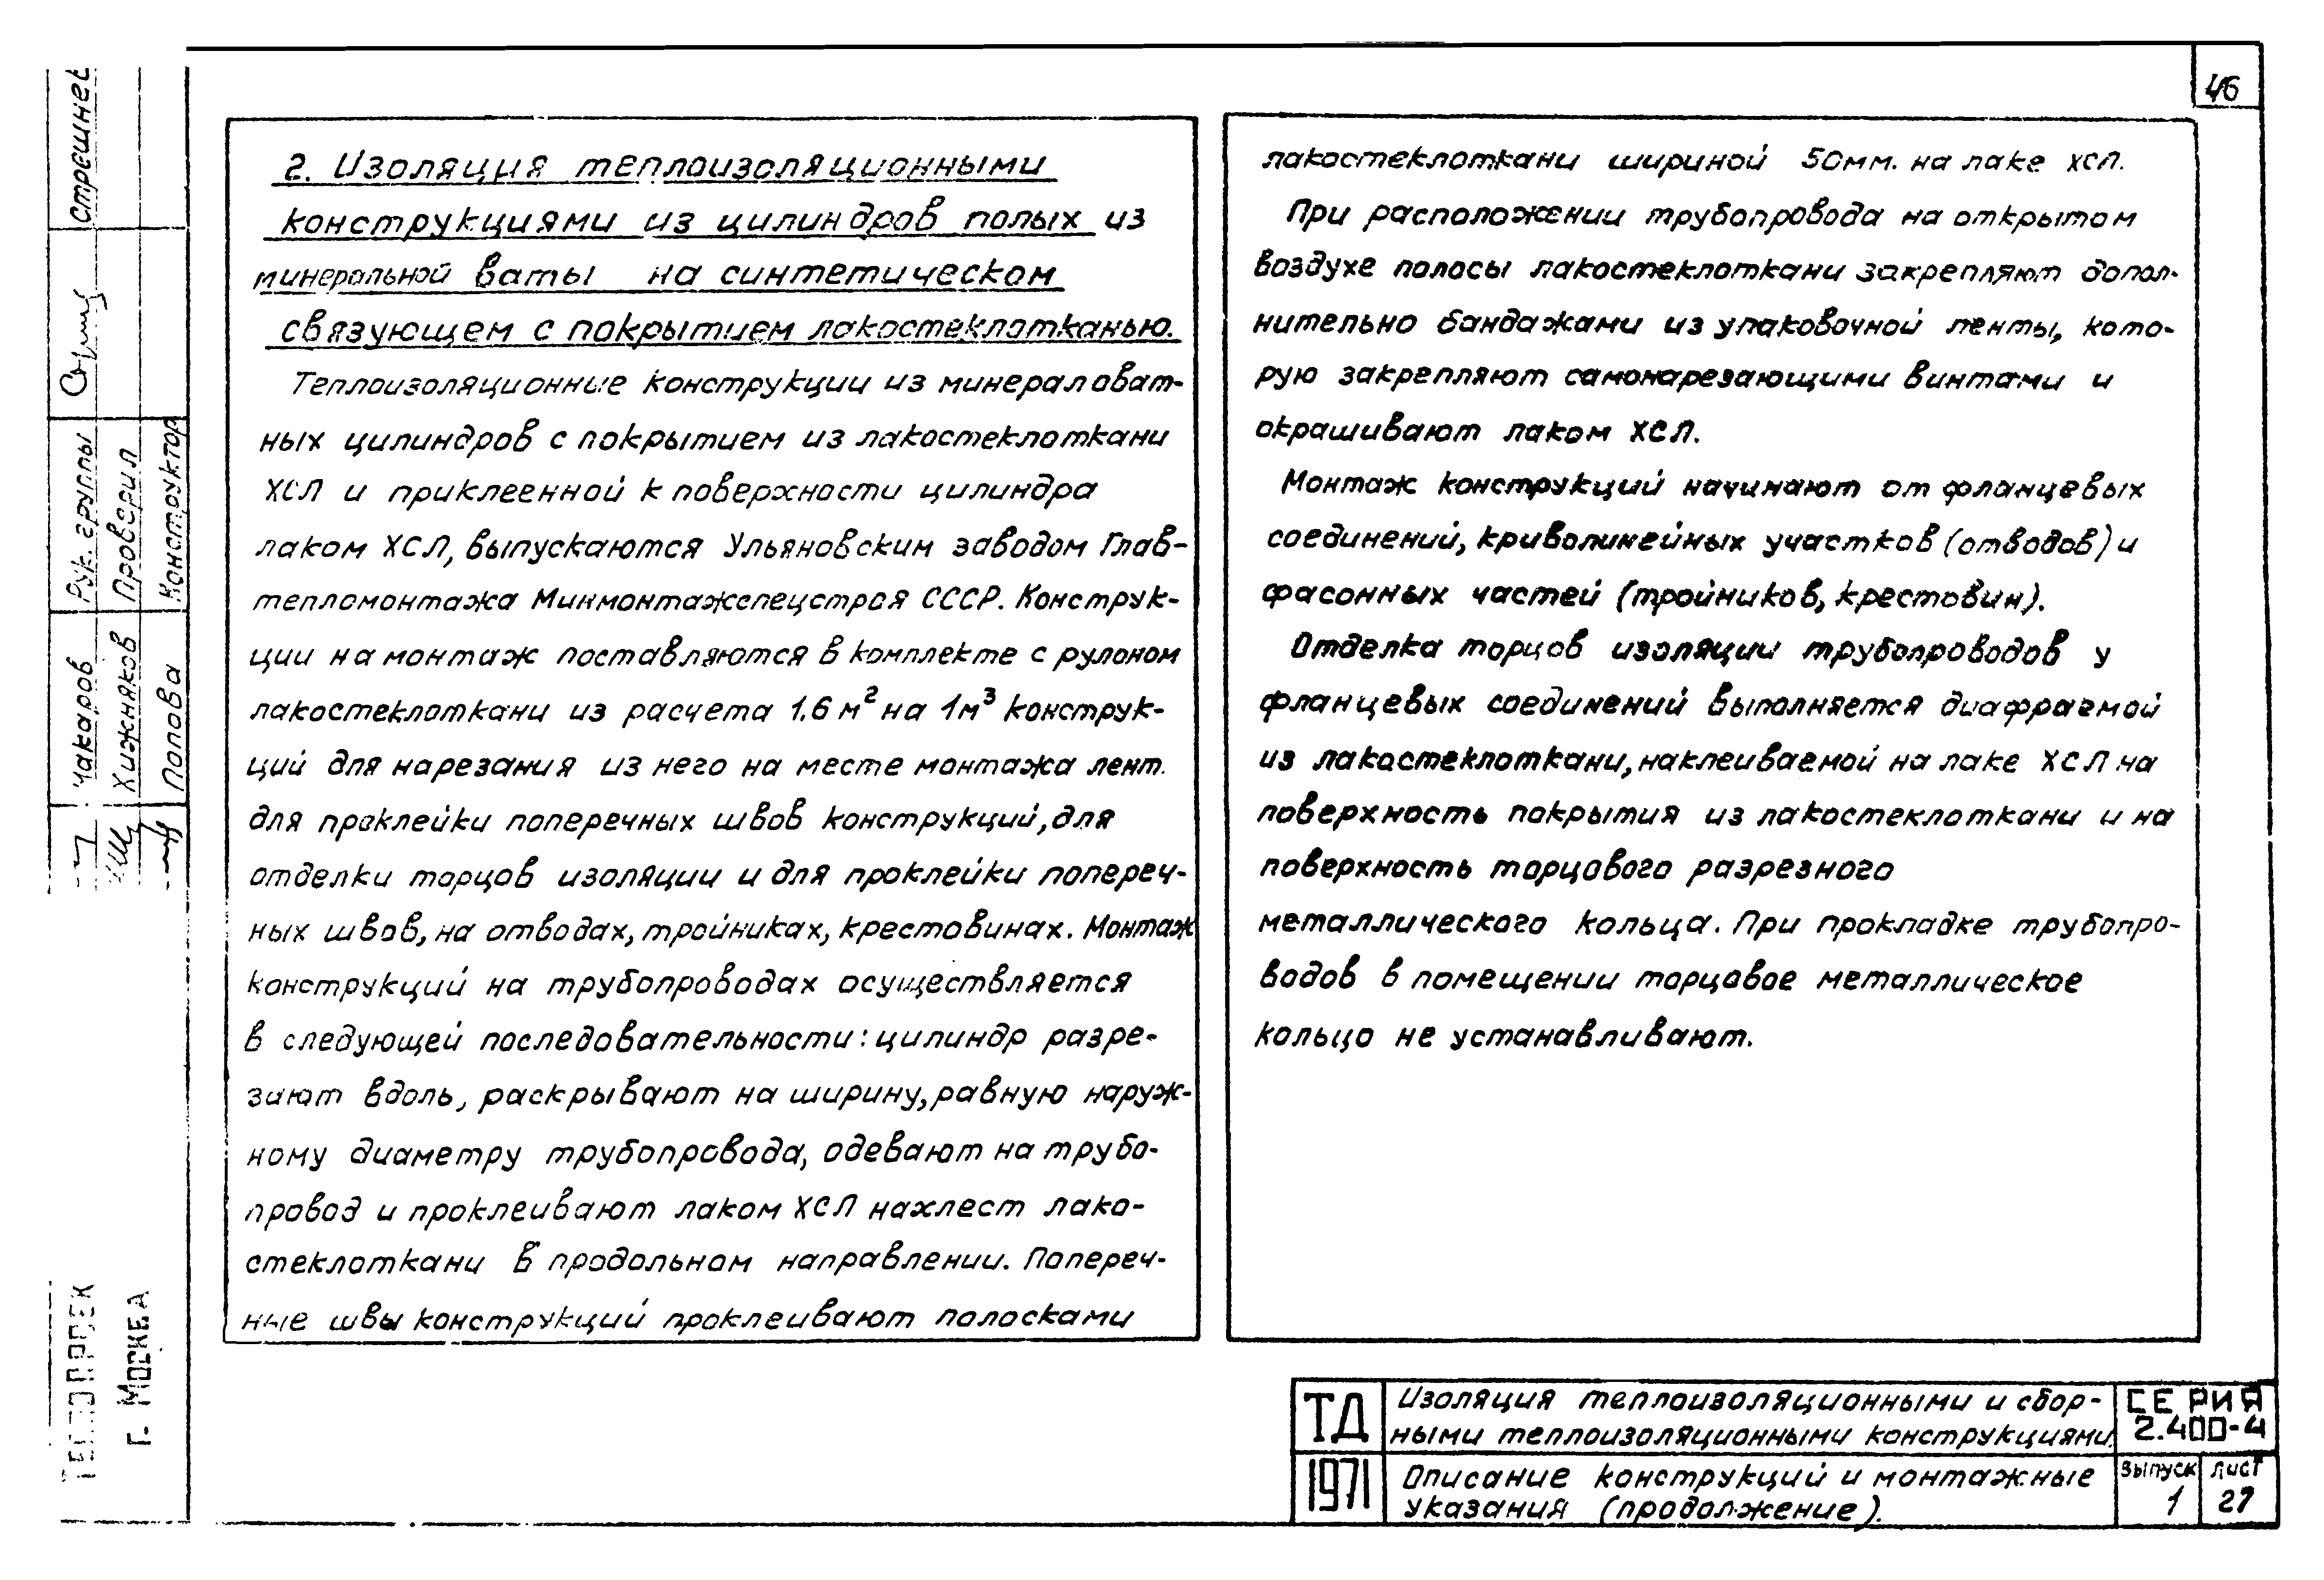 46
2. Изоляция теплоизоляционными
конструкциями из цилиндров полых из
минеральной ваты на синтетическом
связующем с покрытием лакостеклотканью.
Теплоизоляционные конструкции из минераловат-
ных цилиндров с покрытием из лакостеклоткани
ХСЛ и приклеенной к поверхности цилиндра
лаком ХСЛ, выпускаются Ульяновским заводом Глав-
тепломонтажа Минмонтажспецстроя СССР. Конструк-
ции на монтаж поставляются в комплекте с рулоном
лакостеклоткани из расчета 1.6 м² на 1м³ конструк-
ций для нарезания из него на месте монтажа лент
для проклейки поперечных швов конструкций, для
отделки торцов изоляции и для проклейки попереч-
ных швов, на отводах, тройниках, крестовинах. Монтаж
конструкций на трубопроводах осуществляется
в следующей последовательности: цилиндр разре-
зают вдоль, раскрывают на ширину, равную наруж-
ному диаметру трубопровода, одевают на трубо-
провод и проклеивают лаком ХСЛ нахлест лако-
стеклоткани в продольном направлении. Попереч-
ные швы конструкций проклеивают полосками
лакостеклоткани шириной 50мм. на лаке ХСЛ.
При расположении трубопровода на открытом
воздухе полосы лакостеклоткани закрепляют допол-
нительно бандажами из упаковочной ленты, кото-
рую закрепляют самонарезающими винтами и
окрашивают лаком ХСЛ.
Монтаж конструкций начинают от фланцевых
соединений, криволинейных участков (отводов) и
фасонных частей (тройников, крестовин).
Отделка торцов изоляции трубопроводов у
фланцевых соединений выполняется диафрагмой
из лакостеклоткани, наклеиваемой на лаке ХСЛ на
поверхность покрытия из лакостеклоткани и на
поверхность торцового разрезного
металлического кольца. При прокладке трубопро-
водов в помещении торцовое металлическое
кольцо не устанавливают.
ТД
1971
Изоляция теплоизоляционными и сбор-
ными теплоизоляционными конструкциями.
Описание конструкций и монтажные
указания (продолжение).
СЕРИЯ
2.400-4
Выпуск
1
лист
27
Рук. группы
Проверил
Конструктор
Чакаров
Хижняков
Попова
ТЕПЛОПРОЕК
г. Москва